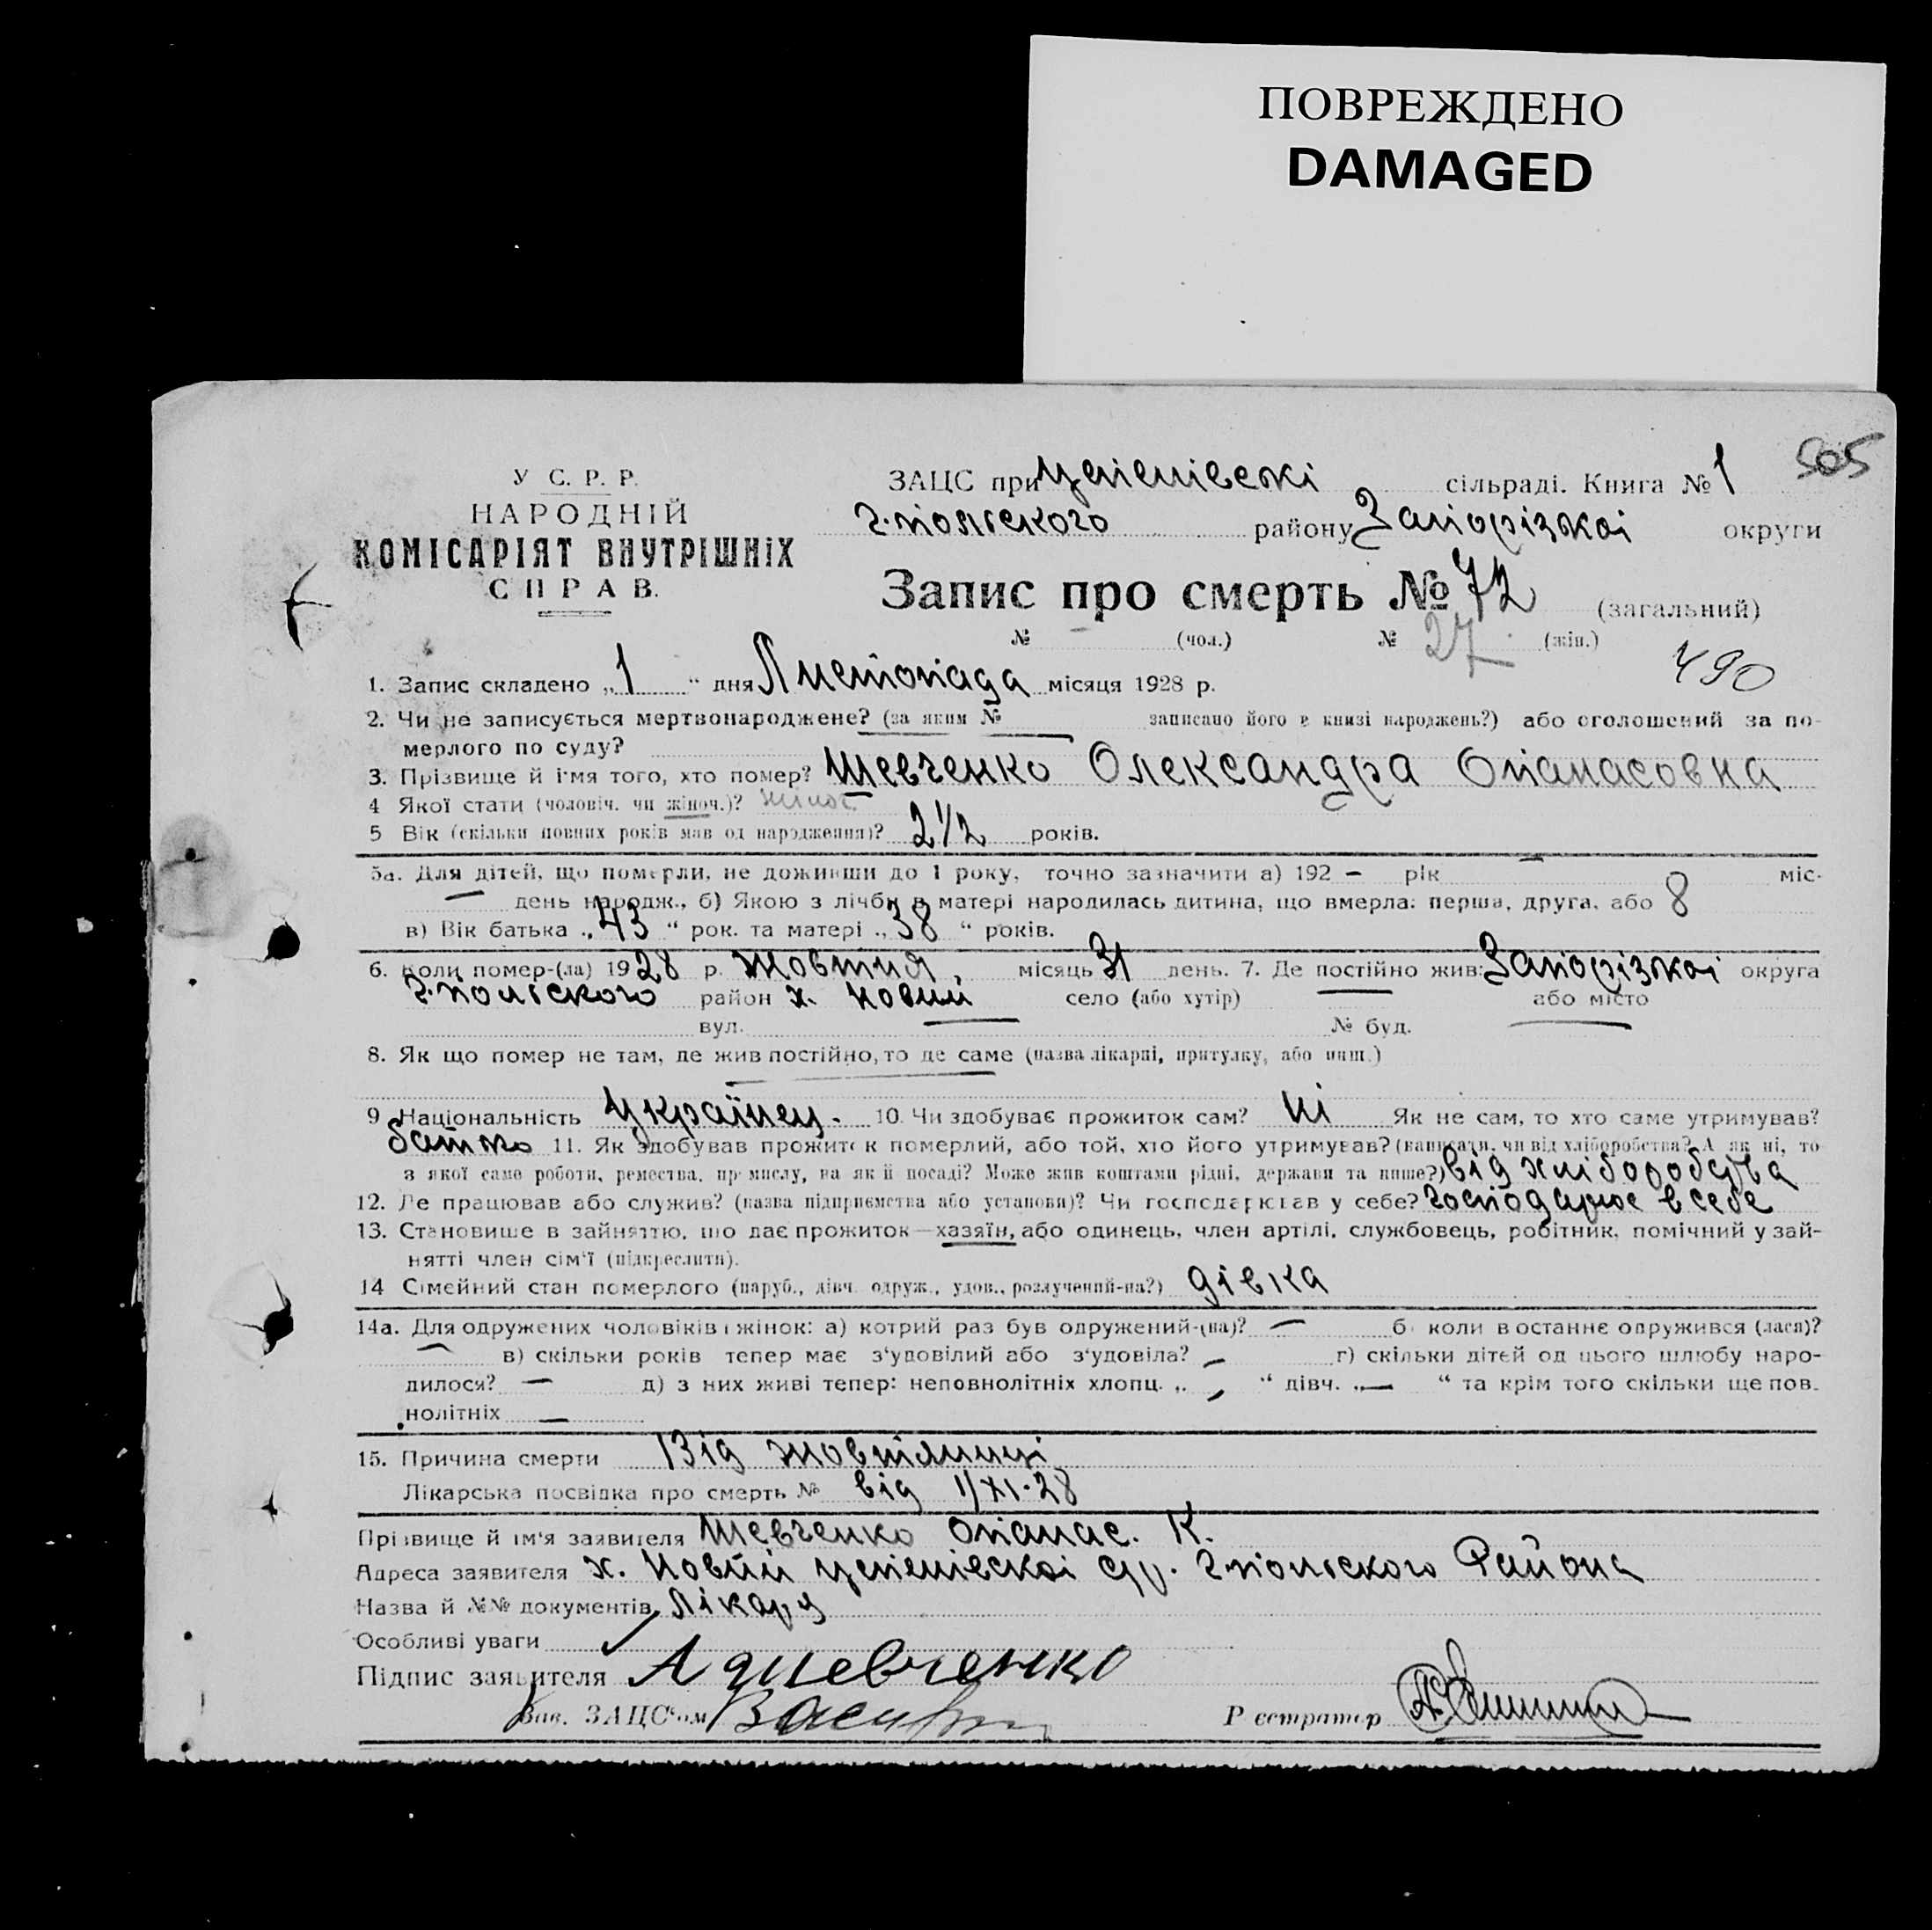 ПОВРЕЖДЕНО
DAMAGED
505
У С. Р. Р.
НАРОДНІЙ
КОМІСАРІЯТ ВНУТРІШНІХ
СПРАВ.
ЗАЦС при Успенівскі сільраді. Книга № 1
Г.польского району Запорізкої округи
Запис про смерть № 72 (загальний)
№ - (чол.) № 27 (жін.)
490
1. Запис складено „1“ дня Листопада місяця 1928 р.
2. Чи не записується мертвонароджене? (за яким № записано його в книзі народжень?) або оголошений за по-
мерлого по суду?
3. Прізвище й ім'я того, хто помер? Шевченко Олександра Опанасовна
4 Якої стати (чоловіч. чи жіноч.)? жіноч.
5 Вік (скільки повних років мав од народження)? 2 1/2 років.
5а. Для дітей, що померли, не доживши до 1 року, точно зазначити а) 192 – рік міс.
— день народж., б) Якою з лічби в матері народилась дитина, що вмерла: перша, друга, або 8
в) Вік батька „43“ рок. та матері „38“ років.
6. Коли помер-(ла) 1928 р. Жовтня, місяць 31 день. 7. Де постійно жив: Запорізкої округа
Г.польского район х. Новий село (або хутір) або місто
вул. № буд.
8. Як що помер не там, де жив постійно, то де саме (назва лікарні, притулку, або инш.)
9 Національність Українец. 10. Чи здобуває прожиток сам? Ні Як не сам, то хто саме утримував?
батько 11. Як здобував прожиток померлий, або той, хто його утримував? (написати, чи від хліборобства? А як ні, то
з якої саме роботи, ремества, промислу, на якій посаді? Може жив коштами рідні, держави та инше?) від хліборобства
12. Де працював або служив? (назва підприємства або установи)? Чи господарював у себе? Господарює в себе
13. Становище в зайняттю, що дає прожиток—хазяїн, або одинець, член артілі, службовець, робітник, помічний у зай-
нятті член сім'ї (підкреслити).
14 Сімейний стан померлого (паруб., дівч. одруж., удов., розлучений-на?) дівка
14а. Для одружених чоловіків і жінок: а) котрий раз був одружений-(на)? — б) коли востаннє одружився (лася)?
— в) скільки років тепер має з'удовілий або з'удовіла? – г) скільки дітей од цього шлюбу наро-
дилося? — д) з них живі тепер: неповнолітніх хлопц. „–“ дівч. „—“ та крім того скільки ще пов.
нолітніх —
15. Причина смерти Від жовтяниці
Лікарська посвідка про смерть № від 1/XI-28
Прізвище й ім'я заявителя Шевченко Опанас. К.
Адреса заявителя х. Новий Успенівскої с/р. Г.польского Района
Назва й №№ документів Лікаря
Особливі уваги
Підпис заявителя А Шевченко
Зав. ЗАЦС'ом
Реєстратор